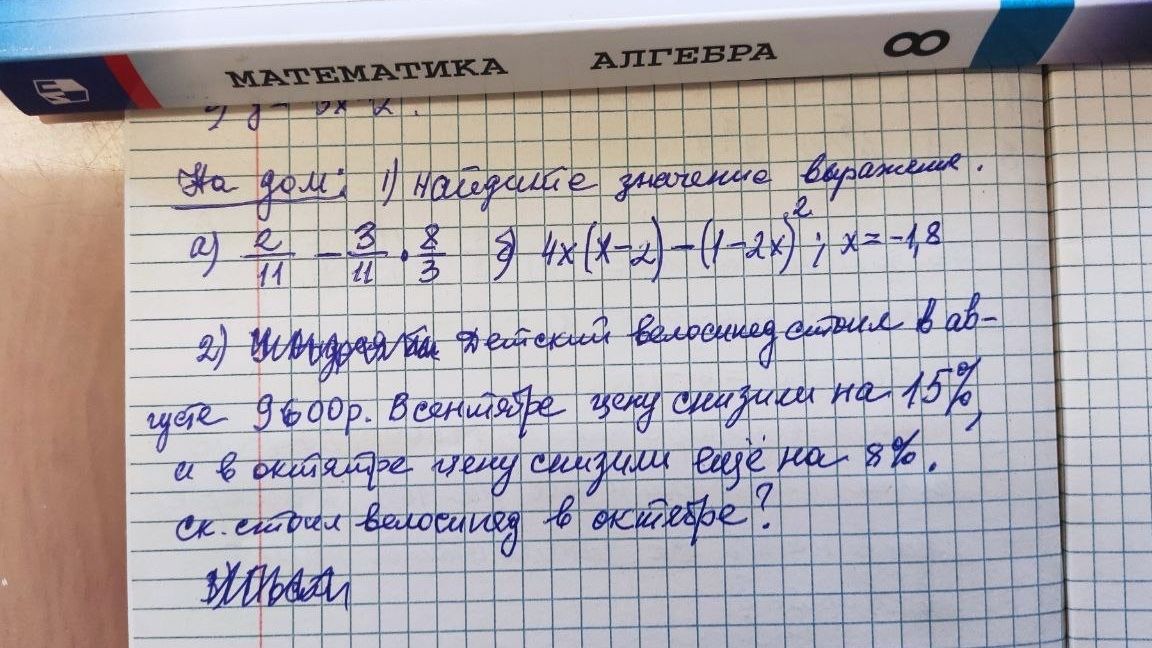 МАТЕМАТИКА АЛГЕБРА 8
На дом: 1) найдите значение выражение.
а) 2/11 - 3/11 · 8/3 б) 4x(x-2)-(1-2x)²; x=-1,8
2) Детский велосипед стоил в ав-
густе 9600р. В сентябре цену снизили на 15%,
и в октятре цену снизили ещё на 8%.
ск. стоил велосипед в октябре?